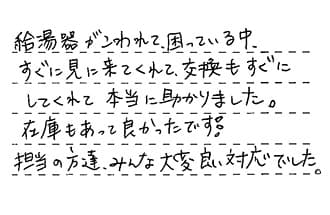 給湯器がこわれて、困っている中、
すぐに見に来てくれて、交換もすぐに
してくれて 本当に助かりました。
在庫もあって良かったです!!
担当の方達、みんな大変良い対応でした。